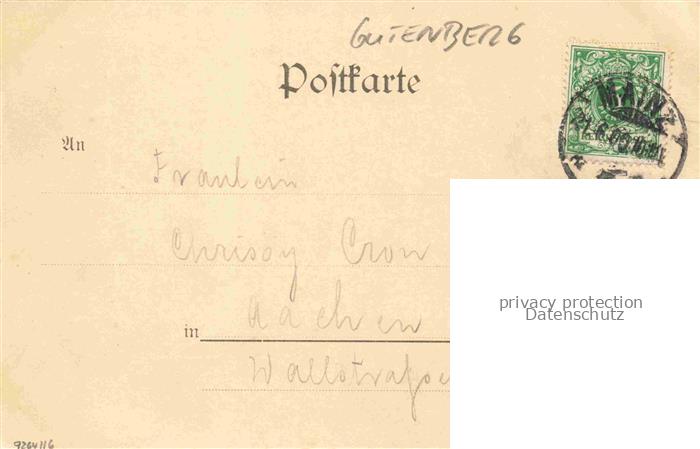 GUTENBERG
Postkarte
MAINZ
An
Fräulein
Chrissy Cron
in Aachen
Wallstraße
privacy protection
Datenschutz
9264116